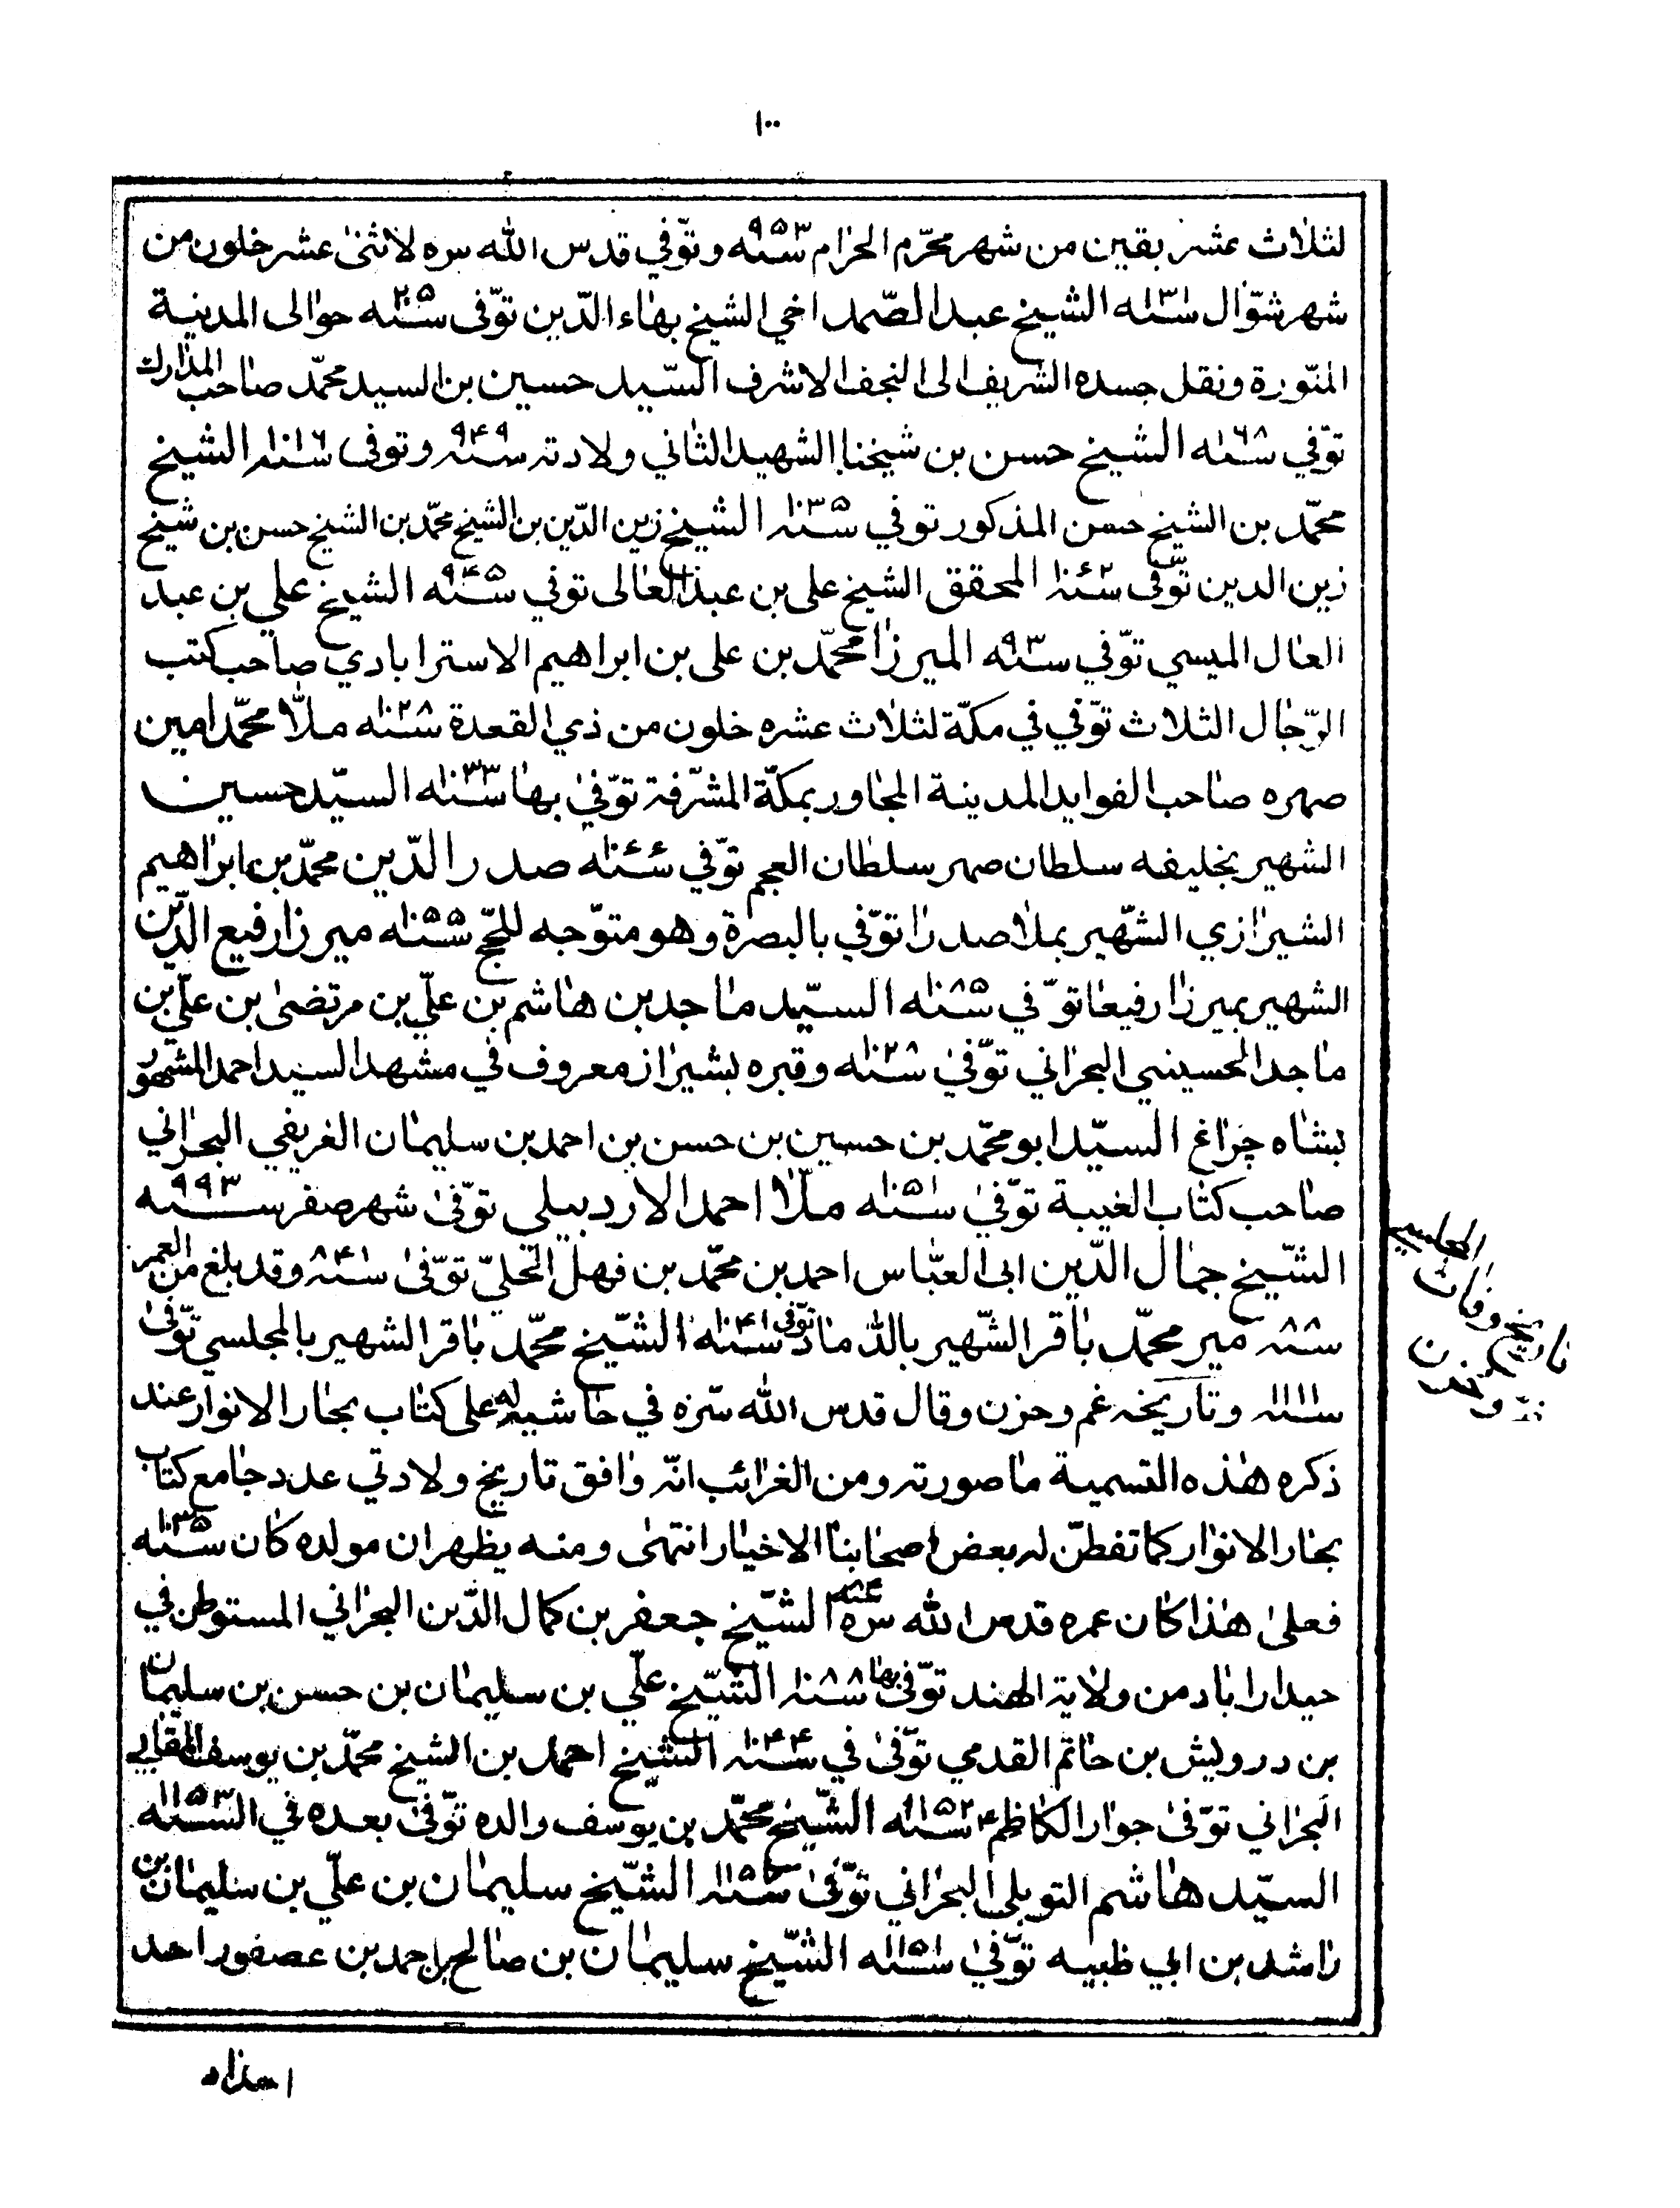 ١٠٠
لثلاث عشر بقين من شهر محرّم الحرام سنه ٩٥٣ وتوّفي قدس الله سره لاثنى عشر خلون من
شهر شوّال الشيخ عبد الصّمد اخي الشيخ بهاء الدّين توّفى حوالى المدينة
المنّورة ونقل جسده الشريف الى النجف الاشرف السّيد حسين بن السيد محمّد صاحب المدارك
توّفي سنه الشيخ حسن بن شيخنا الشهيد الثاني ولادته سنه ٩٤٩ وتوفى سنه الشيخ
محمّد بن الشيخ حسن المذكور توفي سنه ١٠٣٥ الشيخ زين الدّين بن الشيخ محمّد بن الشيخ حسن بن شيخ
زين الدين توّفى سنه المحقق الشيخ على بن عبد العالى توفي سنه ٩٤٥ الشيخ علي بن عبد
العال الميسي توّفي سنه المیرزا محمّد بن على بن ابراهيم الاسترابادي صاحب كتب
الرّجال الثلاث توّفي في مكّة لثلاث عشره خلون من ذي القعدة سنه ١٠٢٨ ملّا محمّد امين
صهره صاحب الفوايد المدينة المجاور بمكّة المشرّفة توّفي بها سنه ١٠٣٣ السيّد حسين
الشهير بخليفه سلطان صهر سلطان العجم توّفي سنه صدر الدّين محمّد بن ابراهيم
الشيرازي الشّهير بملا صدرا توّفي بالبصرة وهو متوّجه للحّج سنه میرزا رفيع الدّين
الشهير بميرزا رفيعا توّفي سنه السيّد ماجد بن هاشم بن علّي بن مرتضى بن علّي بن
ماجد الحسيني البحراني توّفي سنه ١٠٢٨ وقبره بشيراز معروف في مشهد السيد احمد المشهور
بشاه چراغ السيّد ابو محمّد بن حسين بن حسن بن احمد بن سليمان الغريفي البحراني
صاحب كتاب الغيبة توّفي سنه ملّا احمد الاردبيلى توّفى شهر صفر سنه ٩٩٣
الشّيخ جمال الدّين ابى العبّاس احمد بن محمّد بن فهل الحلّي توّفى سنه وقد بلغ من العمر
مير محمّد باقر الشّهير بالدّماد توّفى سنه الشّيخ محمّد باقر الشهير بالمجلسي توّفى
سنه وتاريخه غم وحزن وقال قدس الله سّره في حاشيه له على كتاب بحار الانوار عند
ذكره هذه التسمية ما صورته ومن الغرائب انّه وافق تاريخ ولادتي عدد جامع كتاب
بحار الانوار كما تفطّن له بعض اصحابنا الاخيار انتهى ومنه يظهر ان مولده كان سنه
فعلى هذا كان عمره قدس الله سّره الشّيخ جعفر بن كمال الدّين البحراني المستوطن في
حيدراباد من ولاية الهند توّفى بها سنه الشّيخ علّي بن سليمان بن حسن بن سليمان
بن درويش بن حاتم القدمي توّفى في سنه الشّيخ احمد بن الشيخ محمّد بن يوسف المقابي
البحراني توّفى جوار الكاظم سنه الشّيخ محمّد بن يوسف والده توّفى بعده في السّنه
السيّد هاشم التوبلي البحراني توّفى سنه الشّيخ سليمان بن علّي بن سليمان بن
راشد بن ابي ظبيه توّفي سنه الشّيخ سليمان بن صالح بن احمد بن عصفور احد
تاريخ وفات